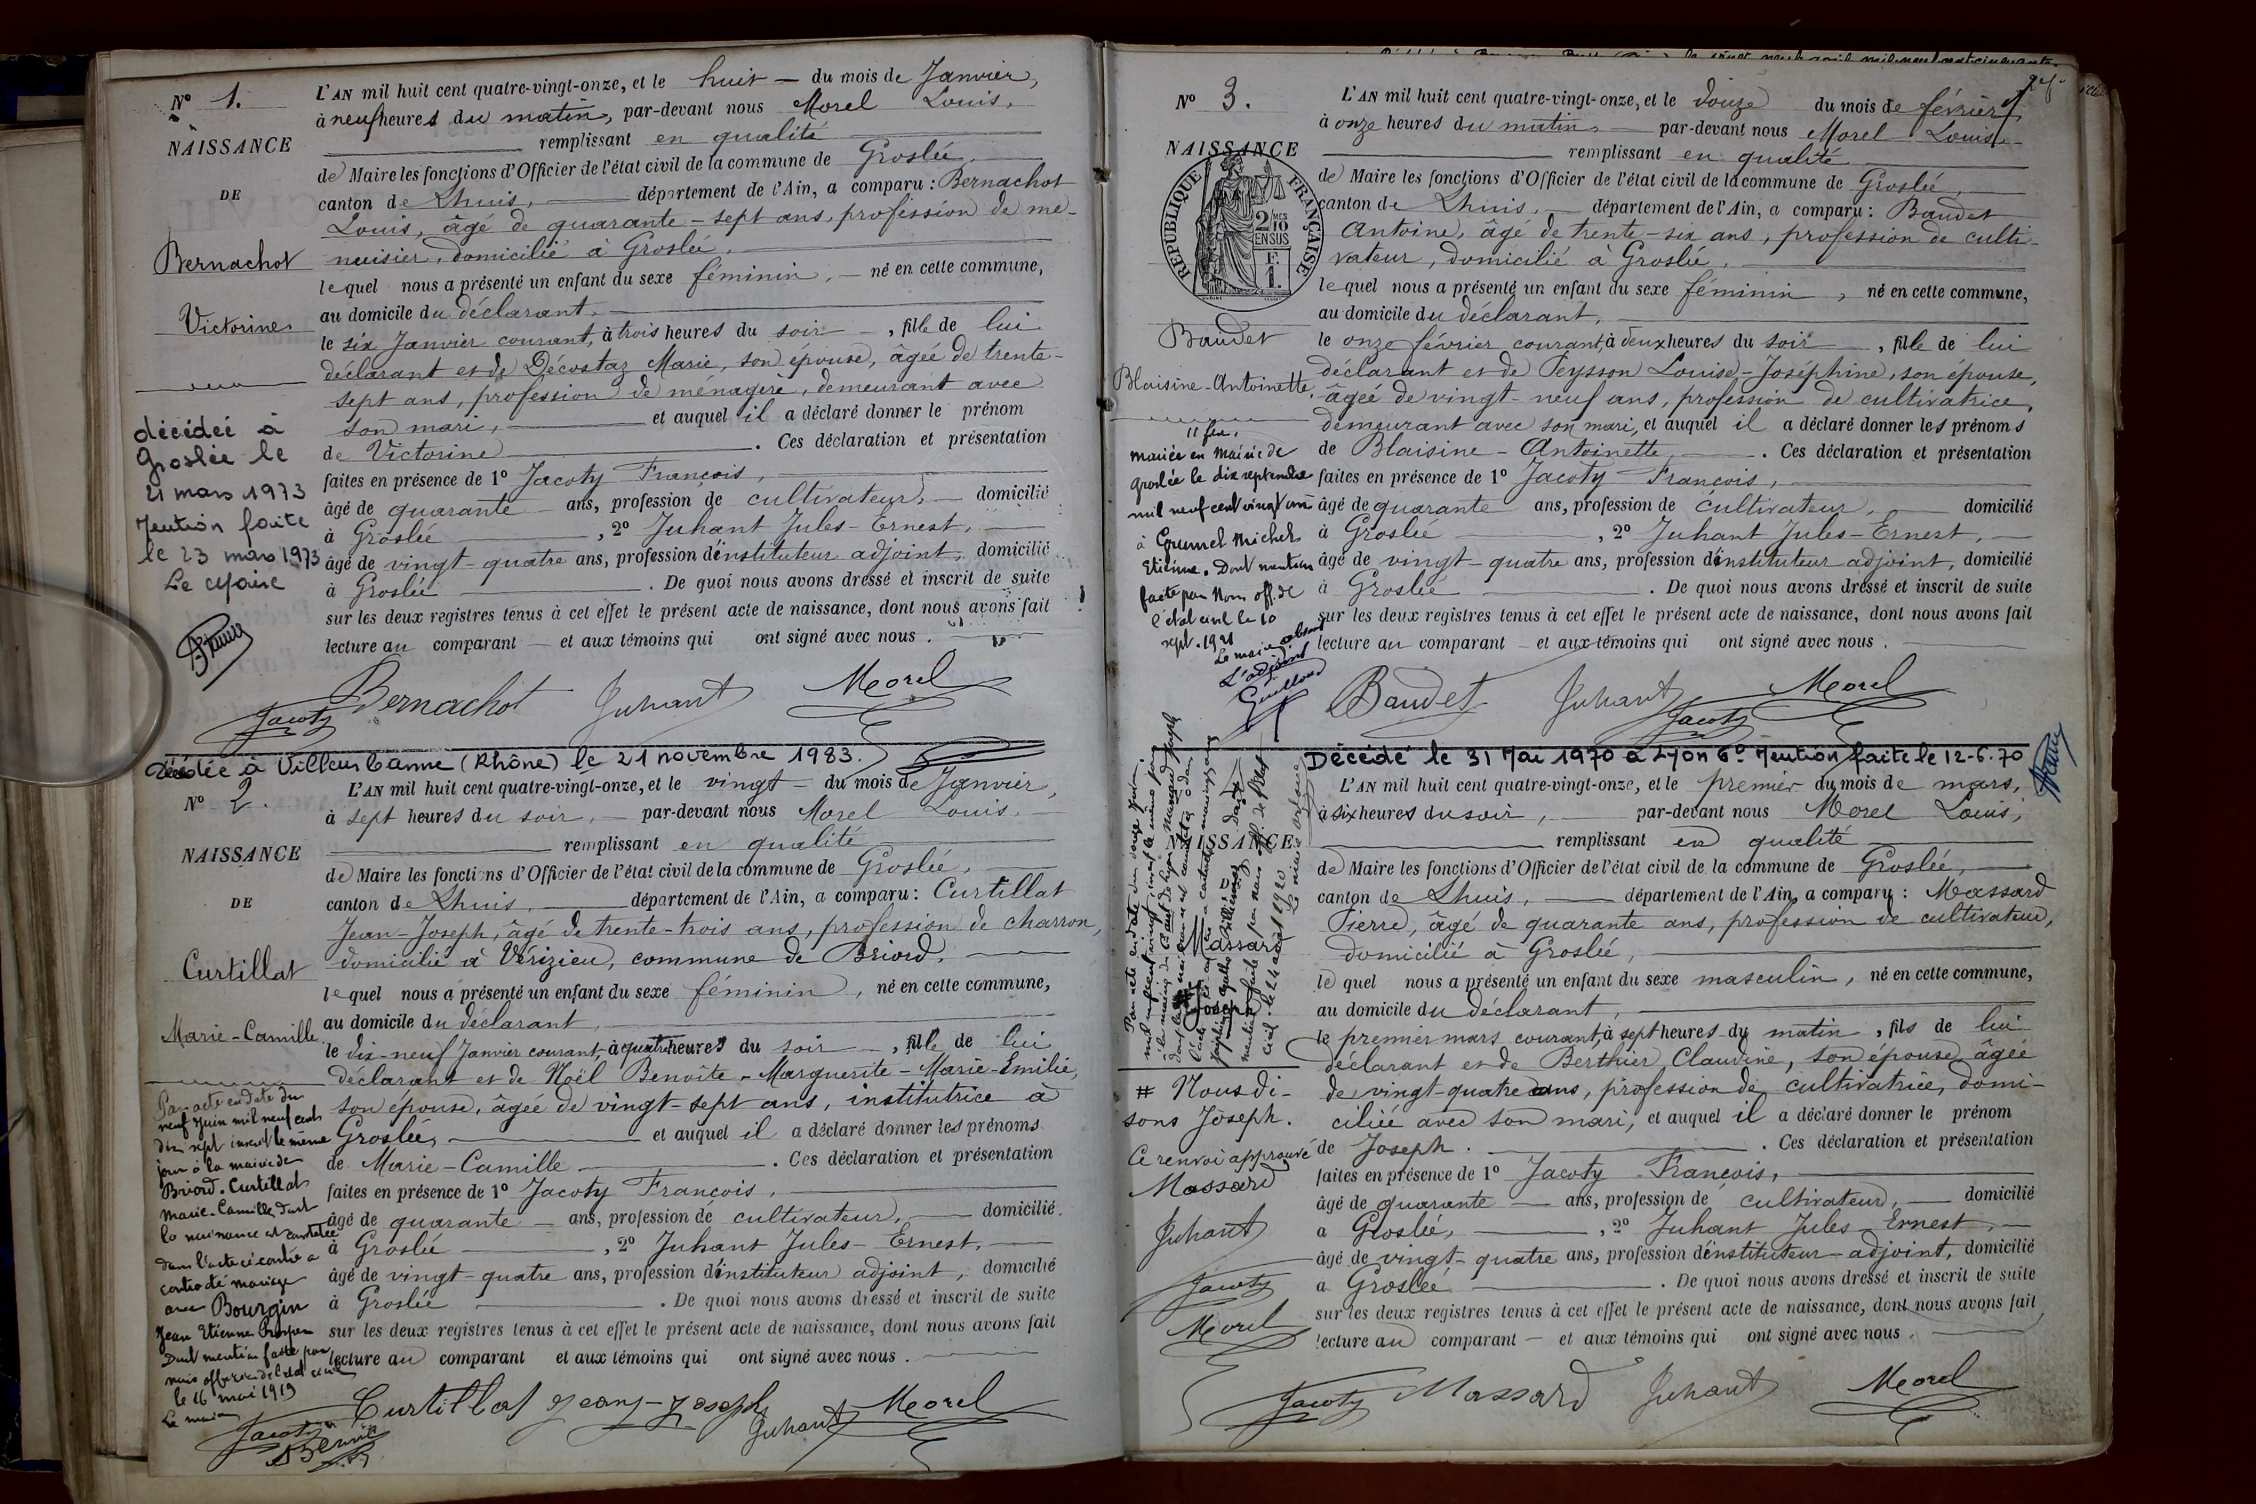 N° 1.
NAISSANCE
DE
Bernachot
Victorine
décédée à
Groslée le
21 mars 1973
Mention faite
le 23 mars 1973
Le Maire
L'AN mil huit cent quatre-vingt-onze, et le huit — du mois de Janvier,
à neuf heures du matin, par-devant nous Morel Louis,
remplissant en qualité
de Maire les fonctions d'Officier de l'état civil de la commune de Groslée,
canton de Lhuis, département de l'Ain, a comparu : Bernachot
Louis, âgé de quarante-sept ans, profession de me-
nuisier, domicilié à Groslée,
lequel nous a présenté un enfant du sexe féminin, — né en cette commune,
au domicile du déclarant,
le six Janvier courant, à trois heures du soir —, fille de lui
déclarant et de Décostaz Marie, son épouse, âgée de trente-
sept ans, profession de ménagère, demeurant avec
son mari, et auquel il a déclaré donner le prénom
de Victorine. Ces déclaration et présentation
faites en présence de 1° Jacoty François,
âgé de quarante ans, profession de cultivateur, — domicilié
à Groslée, 2° Juhant Jules-Ernest,
âgé de vingt-quatre ans, profession d'instituteur adjoint, domicilié
à Groslée. De quoi nous avons dressé et inscrit de suite
sur les deux registres tenus à cet effet le présent acte de naissance, dont nous avons fait
lecture au comparant — et aux témoins qui ont signé avec nous.
Jacoty Bernachot Juhant Morel
Décédée à Villeurbanne (Rhône) le 21 novembre 1983.
N° 2.
NAISSANCE
DE
Curtillat
Marie-Camille
Par acte en date du
neuf Juin mil neuf cent
dix sept inscrit le même
jour à la mairie de
Briord. Curtillat
Marie-Camille dont
la naissance est constatée
dans l'acte ci contre a
contracté mariage
avec Bourgin
Jean Etienne
Dont mention faite par
nous officier de l'état civil
le 16 mai 1919
Le maire
L'AN mil huit cent quatre-vingt-onze, et le vingt — du mois de Janvier,
à sept heures du soir, — par-devant nous Morel Louis,
remplissant en qualité
de Maire les fonctions d'Officier de l'état civil de la commune de Groslée,
canton de Lhuis, département de l'Ain, a comparu : Curtillat
Jean-Joseph, âgé de trente-trois ans, profession de charron,
domicilié à Vérizieu, commune de Briord,
lequel nous a présenté un enfant du sexe féminin, né en cette commune,
au domicile du déclarant,
le dix-neuf Janvier courant, à quatre heures du soir —, fille de lui
déclarant et de Noël Benoîte-Marguerite-Marie-Emilie,
son épouse, âgée de vingt-sept ans, institutrice à
Groslée, et auquel il a déclaré donner les prénoms
de Marie-Camille. Ces déclaration et présentation
faites en présence de 1° Jacoty François,
âgé de quarante — ans, profession de cultivateur, — domicilié
à Groslée, 2° Juhant Jules-Ernest,
âgé de vingt-quatre ans, profession d'instituteur adjoint, domicilié
à Groslée. De quoi nous avons dressé et inscrit de suite
sur les deux registres tenus à cet effet le présent acte de naissance, dont nous avons fait
lecture au comparant et aux témoins qui ont signé avec nous.
Jacoty Curtillat Jean-Joseph Juhant Morel
N° 3.
NAISSANCE
RÉPUBLIQUE FRANÇAISE
2 MES 10
EN SUS
F.
1.
Baudet
Blaisine-Antoinette
11 fév.
mariée en Mairie de
Groslée le dix septembre
mil neuf cent vingt un
à Michel
Etienne. Dont mention
faite par Nous off. de
l'état civil le 10
sept. 1921
Le maire absent
L'adjoint
L'AN mil huit cent quatre-vingt-onze, et le douze du mois de février,
à onze heures du matin, — par-devant nous Morel Louis,
remplissant en qualité
de Maire les fonctions d'Officier de l'état civil de la commune de Groslée,
canton de Lhuis, — département de l'Ain, a comparu : Baudet
Antoine, âgé de trente-six ans, profession de culti-
vateur, domicilié à Groslée,
lequel nous a présenté un enfant du sexe féminin, né en cette commune,
au domicile du déclarant,
le onze février courant, à deux heures du soir —, fille de lui
déclarant et de Peysson Louise-Joséphine, son épouse,
âgée de vingt-neuf ans, profession de cultivatrice,
demeurant avec son mari, et auquel il a déclaré donner les prénoms
de Blaisine-Antoinette. Ces déclaration et présentation
faites en présence de 1° Jacoty François,
âgé de quarante ans, profession de cultivateur, domicilié
à Groslée, 2° Juhant Jules-Ernest,
âgé de vingt-quatre ans, profession d'instituteur adjoint, domicilié
à Groslée. De quoi nous avons dressé et inscrit de suite
sur les deux registres tenus à cet effet le présent acte de naissance, dont nous avons fait
lecture au comparant — et aux témoins qui ont signé avec nous.
Baudet Juhant Jacoty Morel
Décédé le 31 Mai 1970 à Lyon 6e Mention faite le 12-6.70
NAISSANCE
Massard
Joseph
# Nous di-
sons Joseph.
Ce renvoi approuvé
Massard
Juhant
Jacoty
Morel
L'AN mil huit cent quatre-vingt-onze, et le premier du mois de mars,
à six heures du soir, — par-devant nous Morel Louis,
remplissant en qualité
de Maire les fonctions d'Officier de l'état civil de la commune de Groslée,
canton de Lhuis, — département de l'Ain, a comparu : Massard
Pierre, âgé de quarante ans, profession de cultivateur,
domicilié à Groslée,
lequel nous a présenté un enfant du sexe masculin, né en cette commune,
au domicile du déclarant,
le premier mars courant, à sept heures du matin, fils de lui
déclarant et de Berthier Claudine, son épouse, âgée
de vingt-quatre ans, profession de cultivatrice, domi-
ciliée avec son mari, et auquel il a déclaré donner le prénom
de Joseph. Ces déclaration et présentation
faites en présence de 1° Jacoty François,
âgé de quarante — ans, profession de cultivateur, — domicilié
a Groslée, 2° Juhant Jules-Ernest,
âgé de vingt-quatre ans, profession d'instituteur-adjoint, domicilié
a Groslée. De quoi nous avons dressé et inscrit de suite
sur les deux registres tenus à cet effet le présent acte de naissance, dont nous avons fait
lecture au comparant — et aux témoins qui ont signé avec nous.
Jacoty Massard Juhant Morel